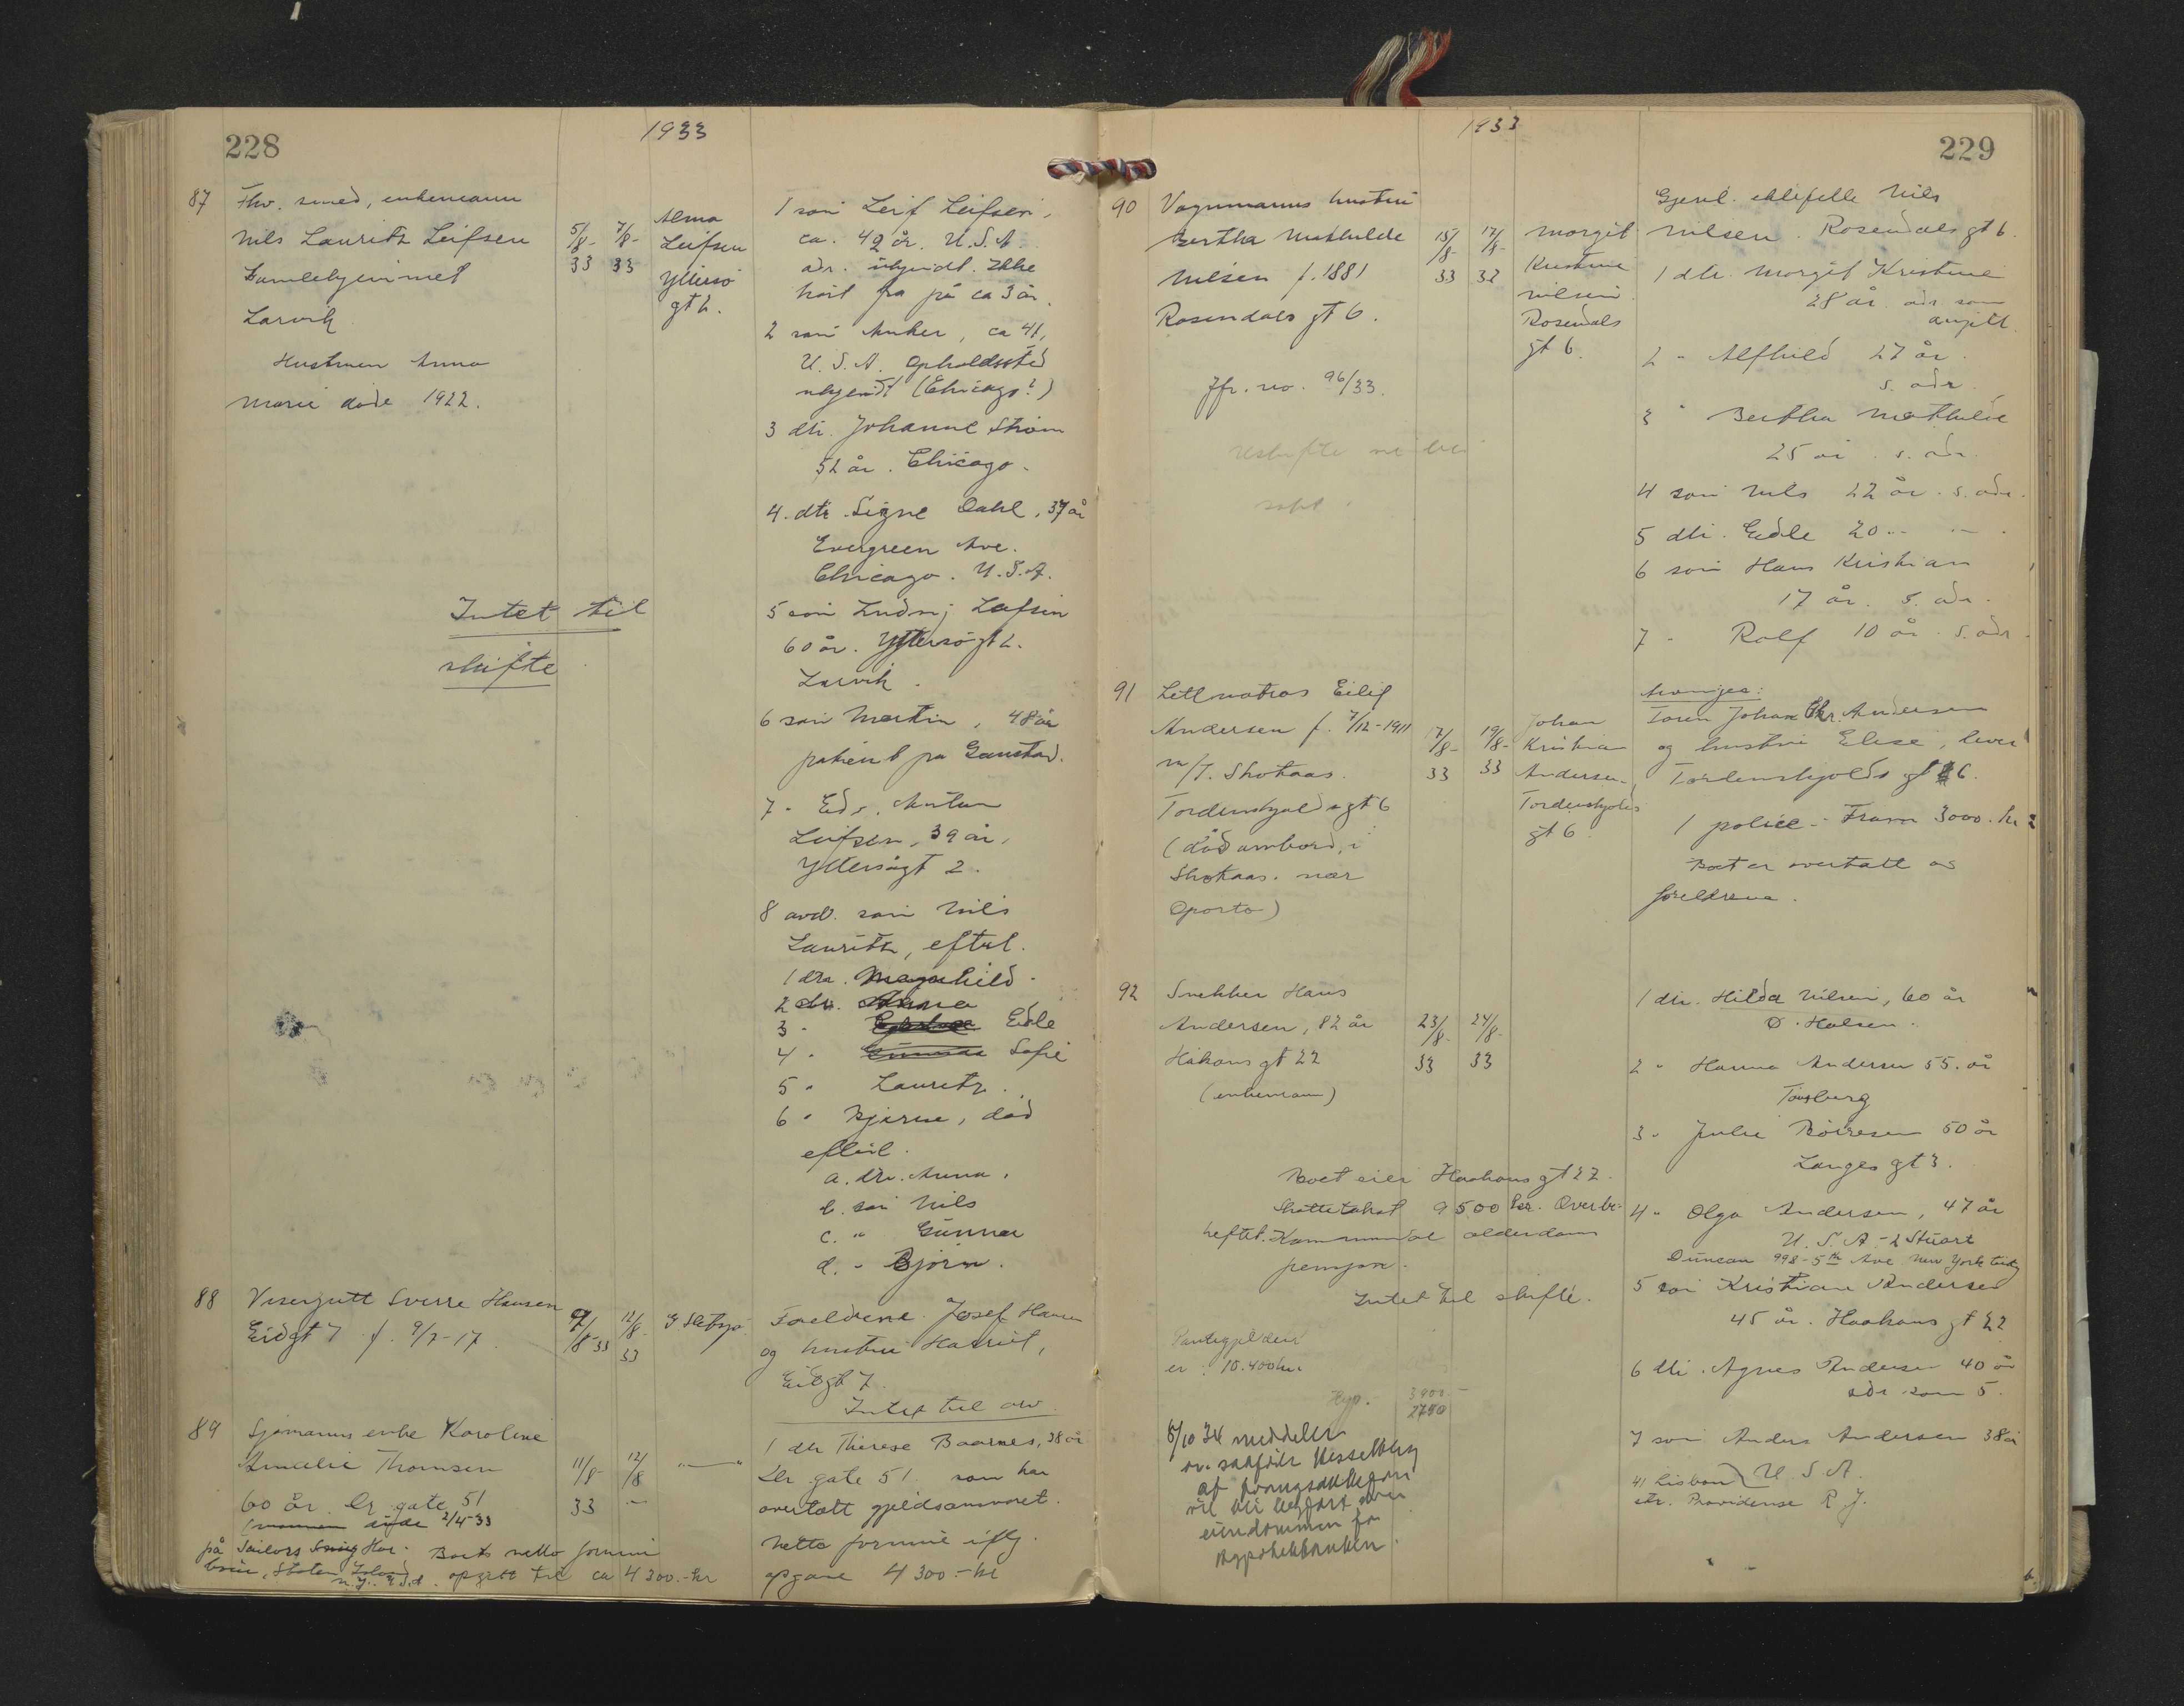 228
1933
87
Fhv. smed, enkemann
Nils Lauritz Leifsen
Gamlehjemmet
Larvik
Hustruen Anna
Marie døde 1922.
5/8-33
7/8-33
Alma
Leifsen
Yttersö
gt 2.
Intet til
skifte
1 søn Leif Leifsen,
ca. 42 år. U.S.A.
adr. ubekjendt. Ikke
hørt fra på ca 3 år.
2 søn Anker, ca 41,
U.S.A. Opholdssted
ubekjendt (Chicago?)
3 dtr. Johanne Strøm
52 år. Chicago.
4. dtr. Signe Dahl, 37 år
Evergreen Ave.
Chicago. U.S.A.
5 søn Ludvig Leifsen
60 år. Yttersögt 2.
Larvik.
6 søn Martin, 48 år
patient på Gaustad.
7 - Edv. Anton
Leifsen, 39 år,
Yttersøgt 2.
8 avd. søn Nils
Lauritz, efterl.
1 dtr. Magnhild.
2 dtr. Anna
3 - Edle
4 - Sofie
5 - Lauritz
6 - Bjarne, død
efterl.
a. dtr. Anna,
b. søn Nils
c. " Gunnar
d. - Bjørn.
88
Visergutt Sverre Hansen
Eidgt 7 f. 9/7-17.
9/8-33
12/8-33
Foreldrene Josef Hansen
og hustru Harriet,
Eidgt 7.
Intet til arv.
89
Sjømanns enke Karoline
Amalie Thomsen
60 år. Dr. gate 51
døde 2/4-33
på Sailors Snug Har-
bour, Staten Island
N.Y. U.S.A.
Boets netto formue
opgitt til ca 4300.- kr
11/8-33
12/8 -
1 dtr Therese Baarnes, 38 år
Dr. gate 51 som har
overtatt gjeldsansvaret.
Netto formue iflg.
opgave 4300.- kr
229
1933
90
Vognmanns hustru
Bertha Mathilde
Nilsen f. 1881
Rosendals gt 6.
Jfr. no. 96/33.
15/8-33
17/8-33
Margit
Kristine
Nilsen
Rosendals
gt 6.
Gjenl. ektefelle Nils
Nilsen. Rosendals gt 6.
1 dtr. Margit Kristine
28 år adr som
avgitt.
2 - Alfhild 27 år.
s. adr.
3 " Bertha Mathilde
25 år. s. adr.
4 søn Nils 22 år. s. adr.
5 dtr. Edle 20 " - " -
6 søn Hans Kristian
17 år. s. adr.
7 - Rolf 10 år. s. adr.
91
Lettmatros Eilif
Andersen f. 7/12-1911
m/T. Skotaas.
Tordenskjolds gt 6
(død ombord i
Skotaas. nær
Oporto)
7/8-33
19/8-33
Johan
Kristian
Andersen
Tordenskjolds
gt 6
Arvinger:
Faren Johan Chr. Andersen
og hustru Elise, lever
Tordenskjolds gt 6.
1 police - Fram 3000. kr
Boet er overtatt av
foreldrene.
92
Snekker Hans
Andersen, 82 år
Håkons gt 22
(enkemann)
23/8-33
24/8-33
Boet eier Haakons gt 22.
Skattetakst 9500 kr. Overbe-
heftet. Kommunal alderdoms
pensjon.
Intet til skifte.
Pantegjelden
er: 10.400 kr.
Hyp. 3900.-
2750
6/10 34 meddeler
o.r.sakfører Hesselberg
at tvangsauksjon
vil bli begjært over
eiendommen for
Hypothekbanken.
1 dtr. Hilda Nilsen, 60 år
Ö. Halsen.
2 - Hanna Andersen 55. år
Tønsberg
3 - Julie Børresen 50 år
Langes gt 3.
4 - Olga Andersen, 47 år
U.S.A. - 2 Stuart
Duncan 998 - 5th Ave New York City
5 søn Kristian Andersen
45 år. Haakons gt 22
6 dtr. Agnes Andersen 40 år
adr som 5.
7 søn Anders Andersen 38 år
41 Lisbon U.S.A.
str. Providense R.J.